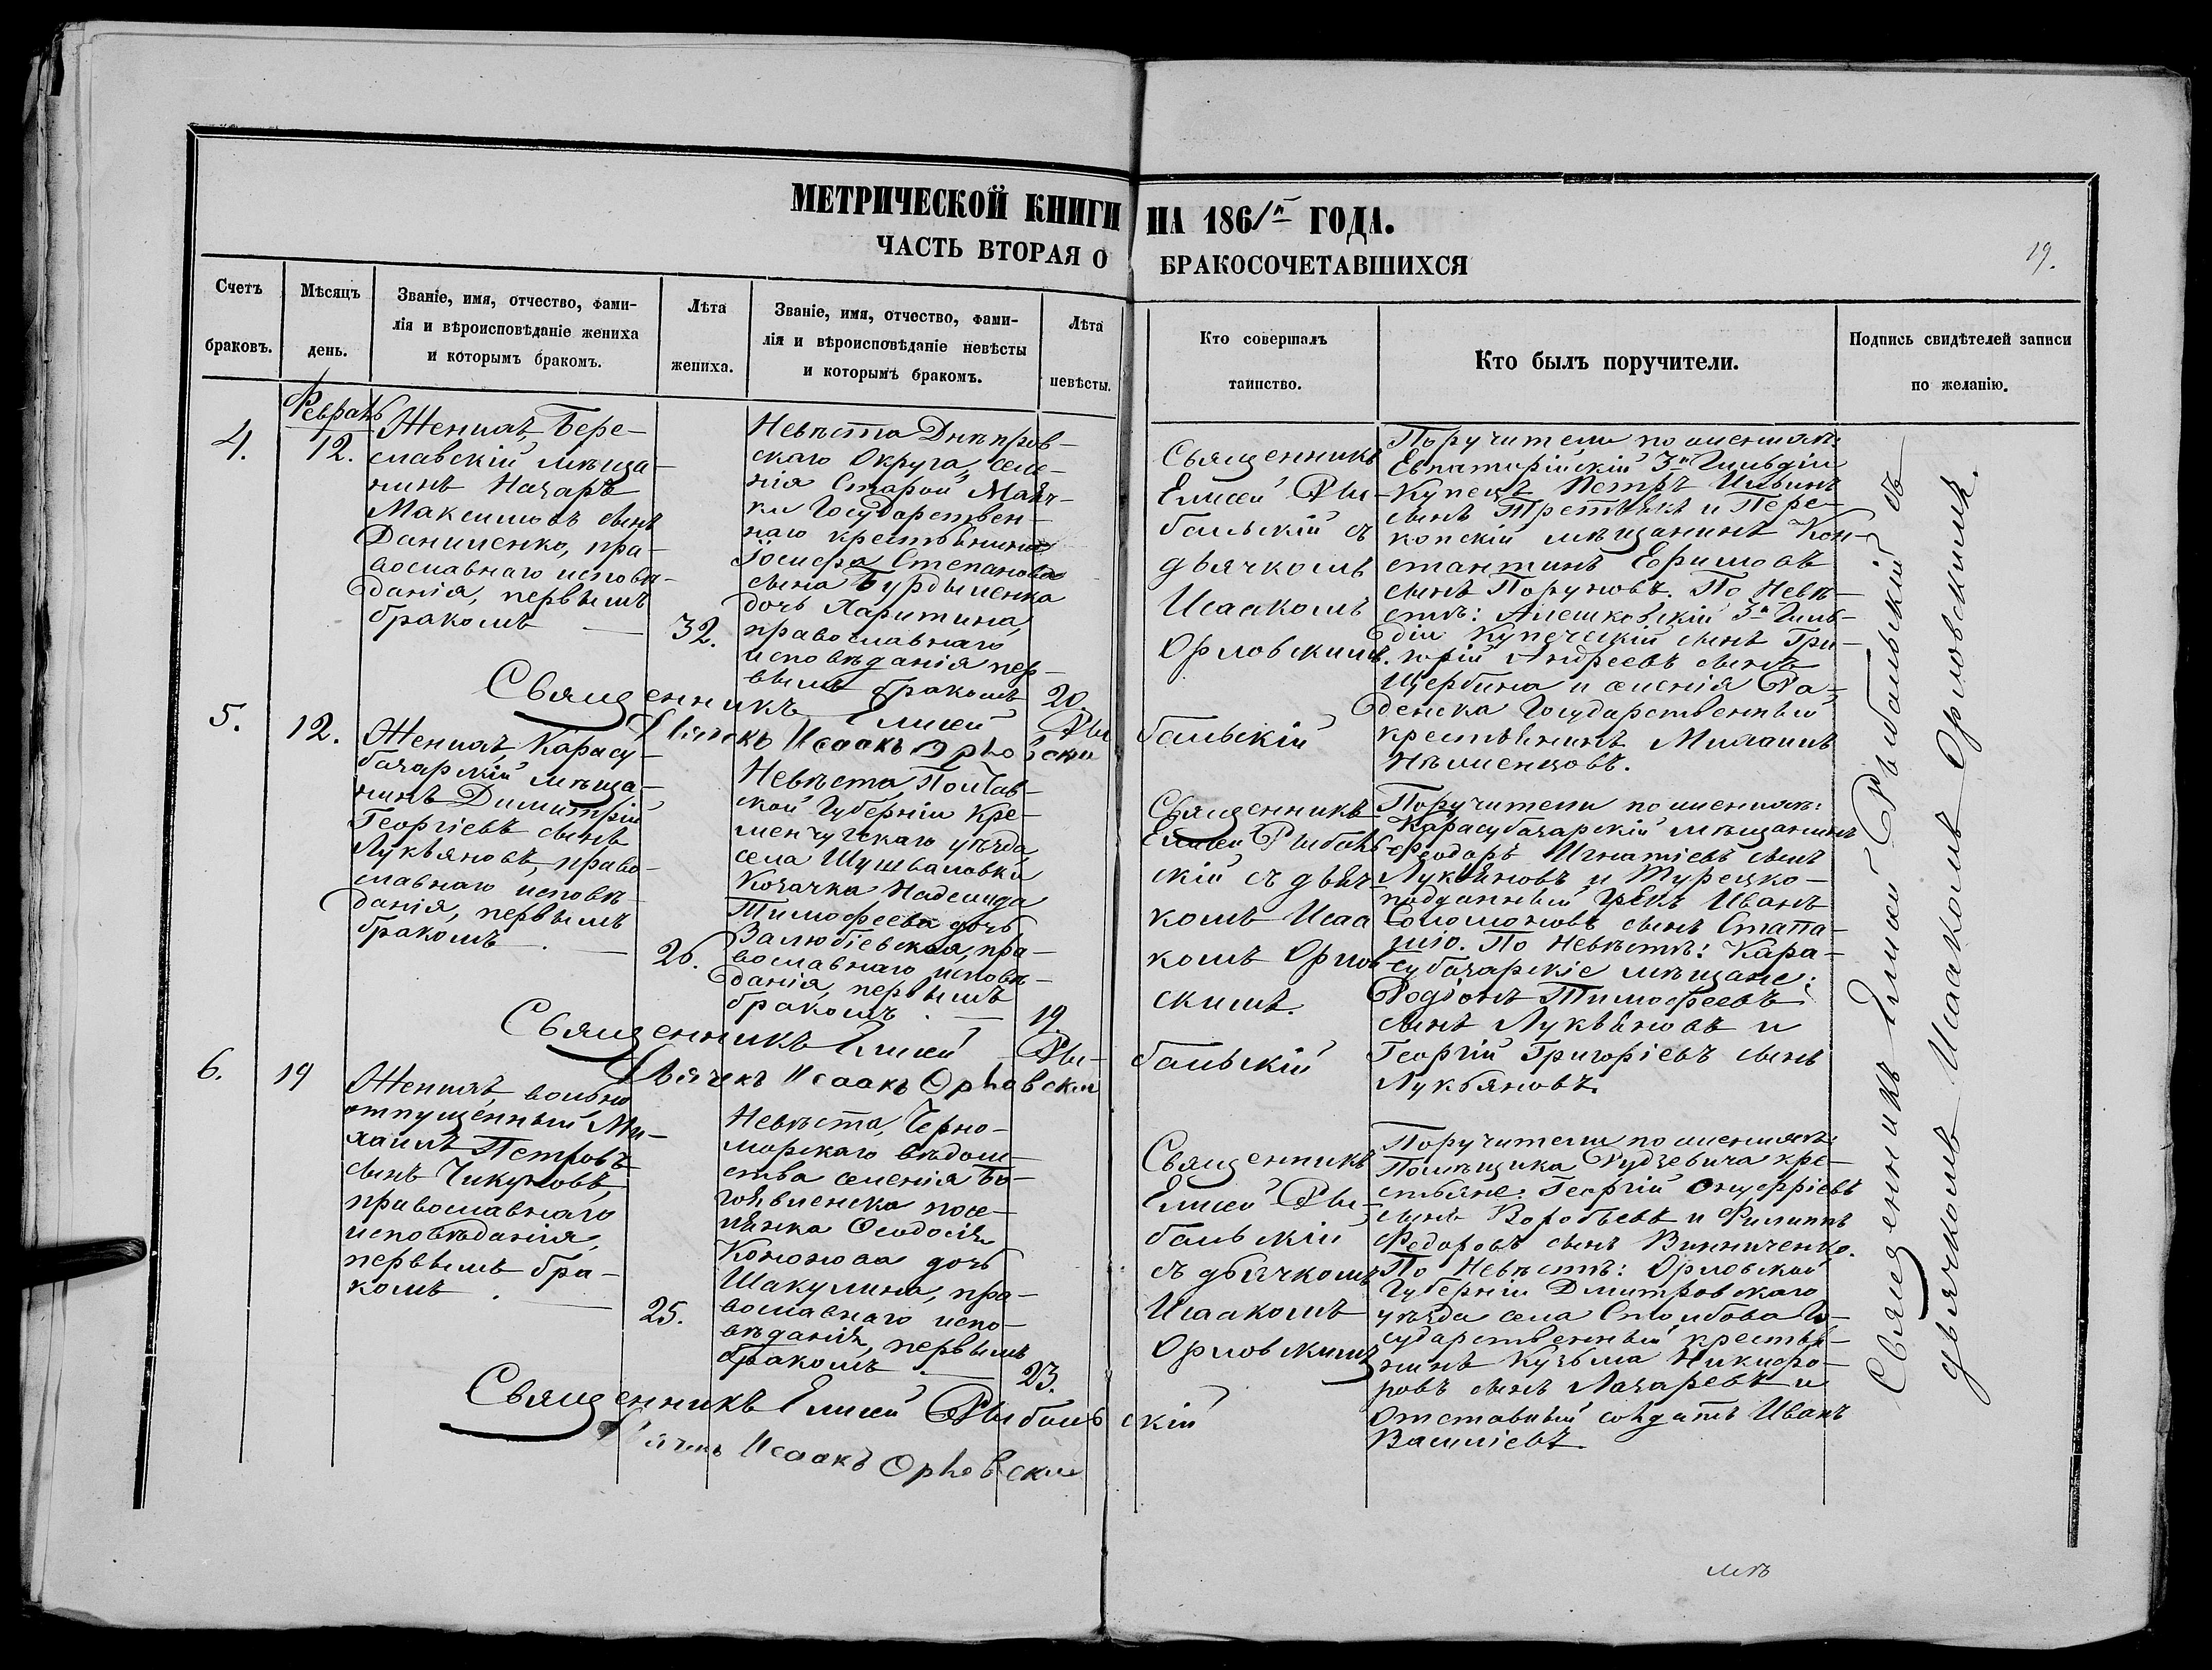 МЕТРИЧЕСКОЙ КНИГИ НА 1861й ГОДА.
ЧАСТЬ ВТОРАЯ О БРАКОСОЧЕТАВШИХСЯ
19.
Счетъ браковъ.
Мѣсяцъ день.
Званіе, имя, отчество, фами-
лія и вѣроисповѣданіе жениха
и которымъ бракомъ.
Лѣта жениха.
Званіе, имя, отчество, фами-
лія и вѣроисповѣданіе невѣсты
и которымъ бракомъ.
Лѣта невѣсты.
Кто совершалъ
таинство.
Кто былъ поручители.
Подпись свидѣтелей записи
по желанію.
Февраль
4.
12.
Женихъ, Бере-
славскій мѣща-
нинъ Назаръ
Максимовъ сынъ
Даниленко, пра-
вославнаго исповѣ-
данія, первымъ
бракомъ
32.
Невѣста Днѣпров-
скаго Округа, селе-
нія Старой Маяч-
ки Государствен-
наго крестьянина
Іосифа Степанова
сына Бурдыменка
дочь Харитина,
православнаго
исповѣданія пер-
вымъ бракомъ
20.
Священникъ
Елисей Ры-
бальскій съ
дьячкомъ
Исаакомъ
Орловскимъ.
Поручители по женихѣ:
Евпаторійскій 3й Гильдіи
Купецъ Петръ Ильинъ
сынъ Третьякъ и Пере-
копскій мѣщанинъ Кон-
стантинъ Ефимовъ
сынъ Поруновъ. По Невѣ-
стѣ: Алешковскій 3й Гиль-
діи Купеческій сынъ Гри-
горій Андреевъ сынъ
Щербина и селенія Ра-
денска Государственный
крестьянинъ Михаилъ
Нѣменцовъ.
Священникъ Елисей Рыбальскій
Дьячекъ Исаакъ Орловскій
5.
12.
Женихъ, Карасу-
базарскій мѣща-
нинъ Димитрій
Георгіевъ сынъ
Лукьяновъ, право-
славнаго исповѣ-
данія, первымъ
бракомъ
26.
Невѣста, Полтав-
ской Губерніи Кре-
менчугскаго уѣзда,
села Шушваловки
Козачка Надежда
Тимофеева дочь
Залюбіевская, пра-
вославнаго исповѣ-
данія, первымъ
бракомъ
19.
Священникъ
Елисей Рыбаль-
скій съ дьяч-
комъ Исаа
комъ Орлов-
скимъ.
Поручители по женихѣ:
Карасубазарскій мѣщанинъ
Феодоръ Игнатіевъ сынъ
Лукьяновъ и Турецко-
подданный Грекъ Иванъ
Соломоновъ сынъ
По Невѣстѣ: Кара-
субазарскіе мѣщане:
Родіонъ Тимофеевъ
сынъ Лукьяновъ и
Георгій Григорьевъ сынъ
Лукьяновъ.
Священникъ Елисей Рыбальскій
Дьячекъ Исаакъ Орловскій
6.
19
Женихъ, вольно
отпущенный Ми-
хаилъ Петровъ
сынъ Чикуновъ,
православнаго
исповѣданія,
первымъ бра-
комъ
25.
Невѣста, Черно-
морскаго вѣдом-
ства селенія Бо-
гоявленска посе-
лянка Ѳеодосія
Кононова дочь
Шакулина, пра-
вославнаго испо-
вѣданія, первымъ
бракомъ
23.
Священникъ
Елисей Ры-
бальскій
съ дьячкомъ
Исаакомъ
Орловскимъ
Поручители по женихѣ:
Помѣщика Рудзевича кре-
стьяне: Георгій Онуфріевъ
сынъ Воробьевъ и Филиппъ
Федоровъ сынъ Винниченко.
По Невѣстѣ: Орловской
Губерніи Дмитровскаго
уѣзда села Столбова Го-
сударственный крестья-
нинъ Кузьма Никифо-
ровъ сынъ Лазаревъ и
Отставный солдатъ Иванъ
Василіевъ.
Священникъ Елисей Рыбальскій
Дьячекъ Исаакъ Орловскій
Священникъ Елисей Рыбальскій съ
дьячкомъ Исаакомъ Орловскимъ.